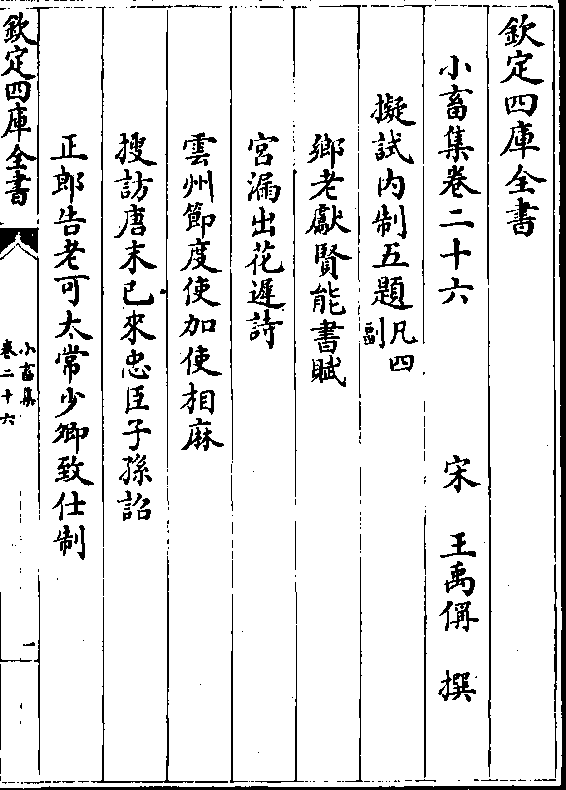 欽定四庫全書
小畜集卷二十六
宋 王禹偁 撰
擬試内制五題凡四副
鄉老獻賢能書賦
宮漏出花遲詩
雲州節度使加使相麻
搜訪唐末已來忠臣子孫詔
正郎告老可太常少卿致仕制
欽定四庫全書
小畜集
卷二十六
一